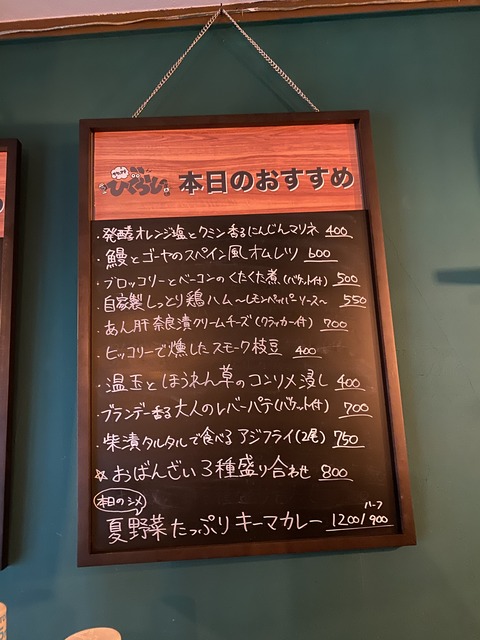 ひぐらし 本日のおすすめ
・発酵オレンジ塩とクミン香るにんじんマリネ 400
・鰻とゴーヤのスペイン風オムレツ 600
・ブロッコリーとベーコンのくたくた煮(バケット付) 500
自家製しっとり鶏ハム 〜レモンペッパーソース〜 550
・あん肝奈良漬クリームチーズ(クラッカー付) 700
・ヒッコリーで燻したスモーク枝豆 400
・温玉とほうれん草のコンソメ浸し 400
・ブランデー香る大人のレバーパテ(バケット付) 700
・柴漬タルタルで食べるアジフライ(2尾) 750
☆おばんざい3種盛り合わせ 800
本日のシメ
ハーフ
夏野菜たっぷりキーマカレー 1200/900